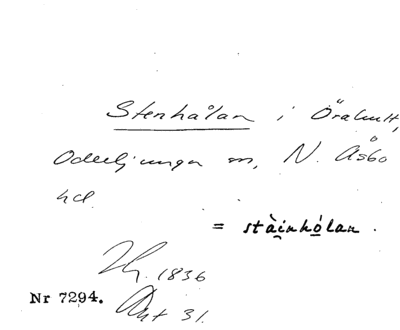 Stenhålan i Örahult,
Oderljunga sn, N. Åsbo
hd.
= stàinhólan.
1836
Nr 7294. Akt 31.